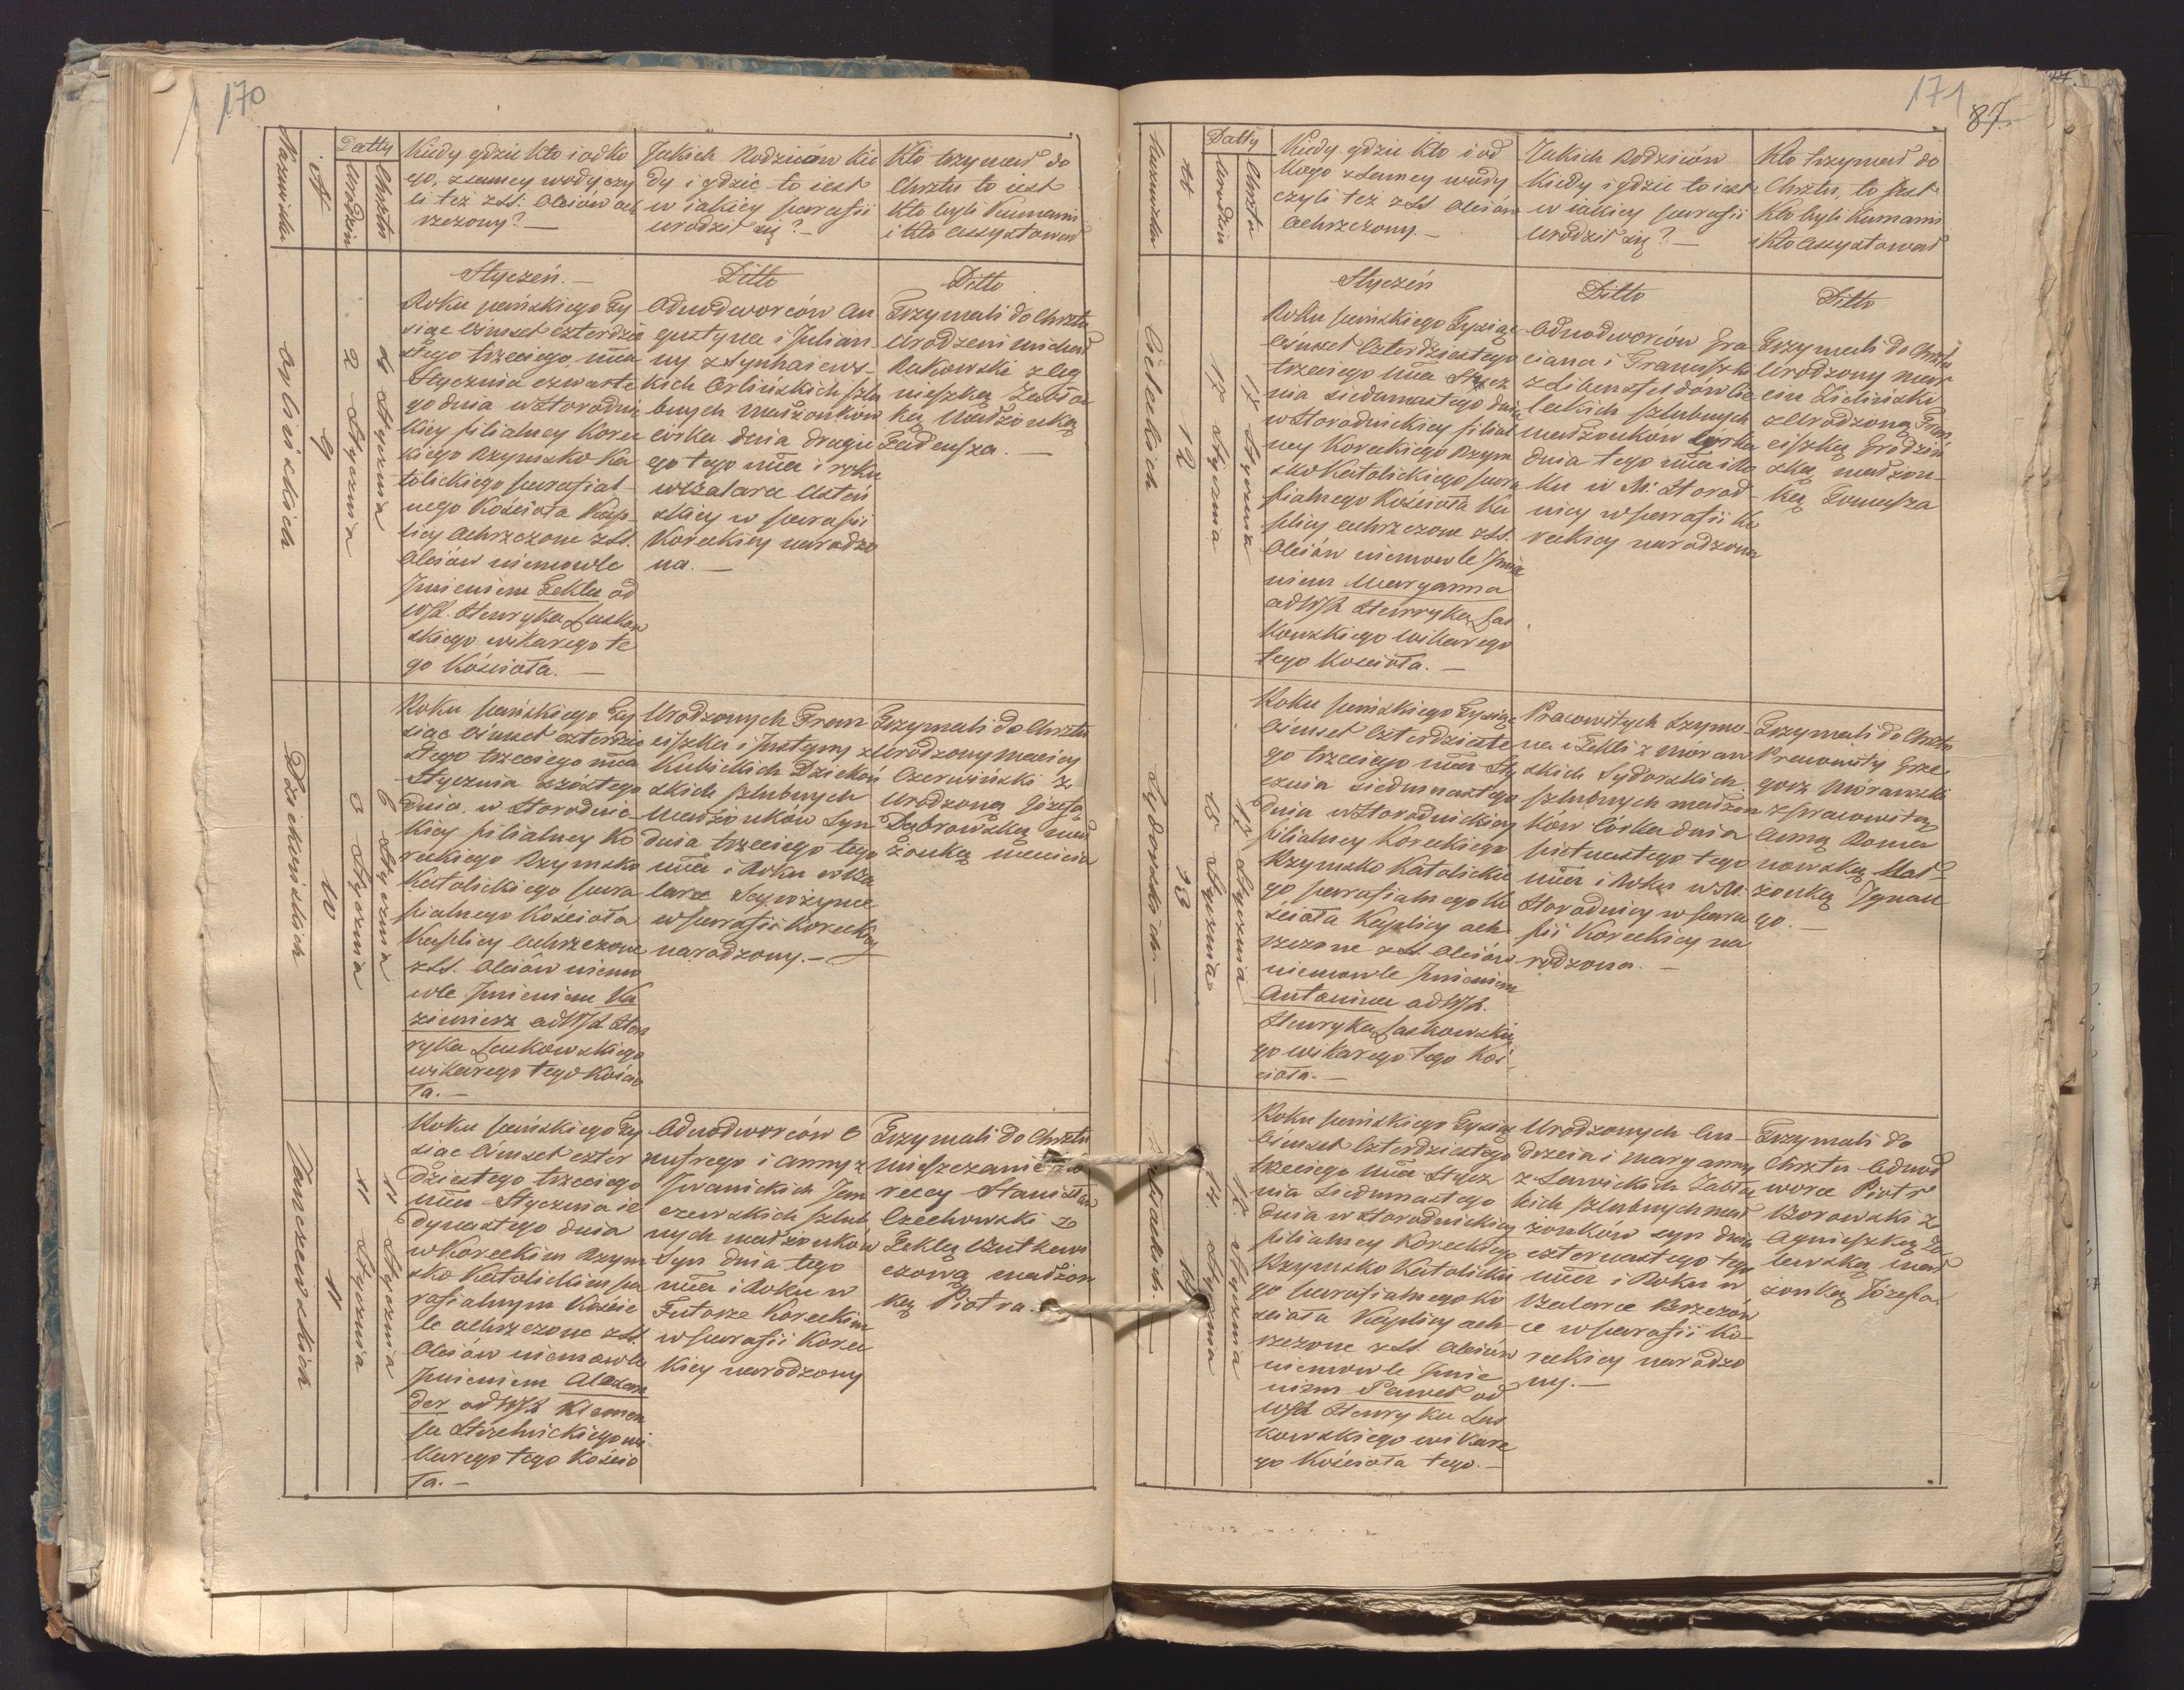 170
Nazwiska
N
Datty
Urodzin
Chrztu
Kiedy gdzie kto i od ko
go, z samey wody czy
li też z SS. Oleiów och
rzczony? —
Jakich Rodziców Kie
dy i gdzie to iest
w iakiey parafii
urodził się? —
Kto trzymał do
Chrztu to iest
Kto byli Kumami
i kto assystował
9
2 Stycznia
4 Stycznia
Styczeń. —
Roku pańskiego Ty
siąc ośmset czterdzie
stego trzeciego, mca
Stycznia czwarte
go dnia w Storodnic
kiey filialney Korec
kiego Rzymsko Ka
tolickiego parafial
nego Kościoła Kap
licy ochrzczone z SS.
Oleiów niemowle
Jmieniem Tekla od
WJX. Henryka Laskow
skiego wikarego te
go Kościoła. —
Ditto
Odnodworców Au
gustyna i Julian
ny z
kich Orlińskich szlu
bnych małżonków
córka dnia drugie
go tego mca i roku
w
skiey w parafii
Koreckiey narodzo
na. —
Ditto
Trzymali do Chrztu
Urodzeni Michał
Rakowski z Ag
nieszką
ką Małżonką
Tadeusza. —
Dziekońskich
10
3 Stycznia
6 Stycznia
Roku pańskiego Ty
siąc ośmset czterdzie
stego trzeciego mca
Stycznia szóstego
dnia w Storodnic
kiey filialney Ko
reckiego Rzymsko
Katolickiego para
fialnego Kościoła
Kaplicy ochrzczone
z SS. Oleiów niemo
wle Jmieniem Ka
zimierz od WJX. Hen
ryka Laskowskiego
wikarego tego Kościo
ła. —
Urodzonych Fran
ciszka i Justyny z
Kubickich Dziekoń
skich szlubnych
Małżonków Syn
dnia trzeciego tego
mca i Roku w Fu
torze
w parafii Koreckiey
narodzony. —
Trzymali do Chrztu
Urodzony Maciey
Czerwiński z
Urodzoną Józefą
Dąbrowską mał
żonką Macieia
Janczewskich
11
11 Stycznia
11 Stycznia
Roku pańskiego Ty
siąc ośmset czter
dziestego trzeciego
mca Stycznia ie
dynastego dnia
w Koreckim Rzym
sko Katolickim pa
rafialnym Koście
le ochrzczone z SS.
Oleiów niemowle
Jmieniem Alexan
der od WJX Klemen
sa Strzelnickiego wi
karego tego Kościo
ła. —
Odnodworców O
nufrego i Anny z
Jwanickich Jan
czewskich szlub
nych małżonków
Syn dnia tego
mca i Roku w
Futorze Koreckim
w parafii Korec
kiey narodzony
Trzymali do Chrztu
mieszczanie Ko
reccy Stanisław
Czechowski z
Teklą Butkiewi
czową małżon
ką Piotra. —
171
87.
Nazwiska
N
Datty
Urodzin
Chrztu
Kiedy gdzie kto i od
kogo z samey wody
czyli też z SS Oleiów
ochrzczony. —
Jakich Rodziców
Kiedy i gdzie to iest
w iakiey parafii
urodził się? —
Kto trzymał do
Chrztu, to jest
Kto byli kumami
i kto assystował
12
17 Stycznia
17 Stycznia
Styczeń
Roku pańskiego Tysiąc
ośmset Czterdziestego
trzeciego mca Stycz
nia siedmnastego dnia
w Storodnickiey filial
ney Koreckiego Rzym
sko Katolickiego para
fialnego Kościoła Ka
plicy ochrzczone z SS.
Oleiów niemowle Jmie
niem Maryanna
od WJX Henryka Las
kowskiego wikarego
tego Kościoła. —
Ditto
Odnodworców Gra
ciana i Franciszki
z
leckich szlubnych
małżonków Córka
dnia tego mca i Ro
ku w M. Storod
nicy w parafii Ko
reckiey narodzona
Ditto
Trzymali do Chrztu
Urodzony Mar
cin Zieliński
z Urodzoną Fran
ciszką Grodziń
ską małżon
ką Tomasza
Sydorskich. —
13
15 Stycznia
17 Stycznia
Roku pańskiego Tysiąc
ośmset Czterdzieste
go trzeciego mca Sty
cznia siedmnastego
dnia w Storodnickiey
filialney Koreckiego
Rzymsko Katolickie
go parafialnego Ko
ścioła Kaplicy och
rzczone z SS. Oleiów
niemowle Jmieniem
Antonina od WJX.
Henryka Laskowskie
go wikarego tego Koś
cioła. —
Pracowitych Szymo
na i Tekli z Moraw
skich Sydorskich
szlubnych małżon
ków Córka dnia
piętnastego tego
mca i Roku w M.
Storodnicy w para
fii Koreckiey na
rodzona. —
Trzymali do Chrztu
Pracowity Grze
gorz Morawski
z Pracowitą
Anną Roma
nowską Mał
żonką Jgnace
go. —
14
14 Stycznia
17 Stycznia
Roku pańskiego Tysiąc
ośmset Czterdziestego
trzeciego mca Stycz
nia siedmnastego
dnia w Storodnickiey
filialney Koreckiego
Rzymsko Katolickie
go parafialnego Ko
ścioła Kaplicy och
rzczone z SS. Oleiów
niemowle Jmie
niem Paweł od
WJX Henryka Las
kowskiego wikare
go Kościoła tego. —
Urodzonych An
drzeia i Maryanny
z Sawickich
kich szlubnych mał
żonków syn dnia
czternastego tego
mca i Roku w
w parafii Ko
reckiey narodzo
ny. —
Trzymali do
Chrztu Odnod
worce Piotr
Borowski z
Agnieszką
lewską mał
żonką Józefa